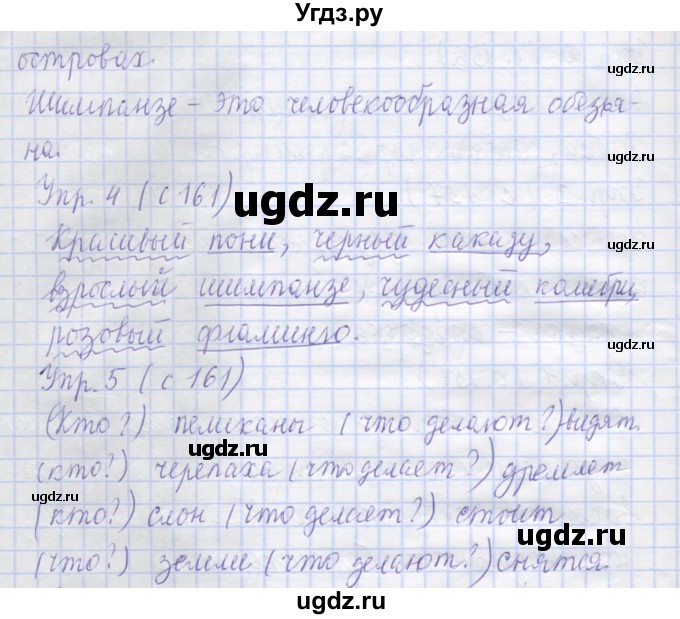 Угдз.ру
островах.
Шимпанзе – это человекообразная обезья-
на.
Упр. 4 (с 161)
Красивый пони, черный какаду,
взрослый шимпанзе, чудесный колибри,
розовый фламинго.
Упр. 5 (с 161)
(Кто?) пеликаны (что делают?) видят
(кто?) черепаха (что делает?) дремлет
(кто?) слон (что делает?) стоит
(что?) земли (что делают?) снятся
ugdz.ru
ugdz.ru
ugdz.ru
ugdz.ru
ugdz.ru
ugdz.ru
ugdz.ru
ugdz.ru
ugdz.ru
ugdz.ru
ugdz.ru
ugdz.ru